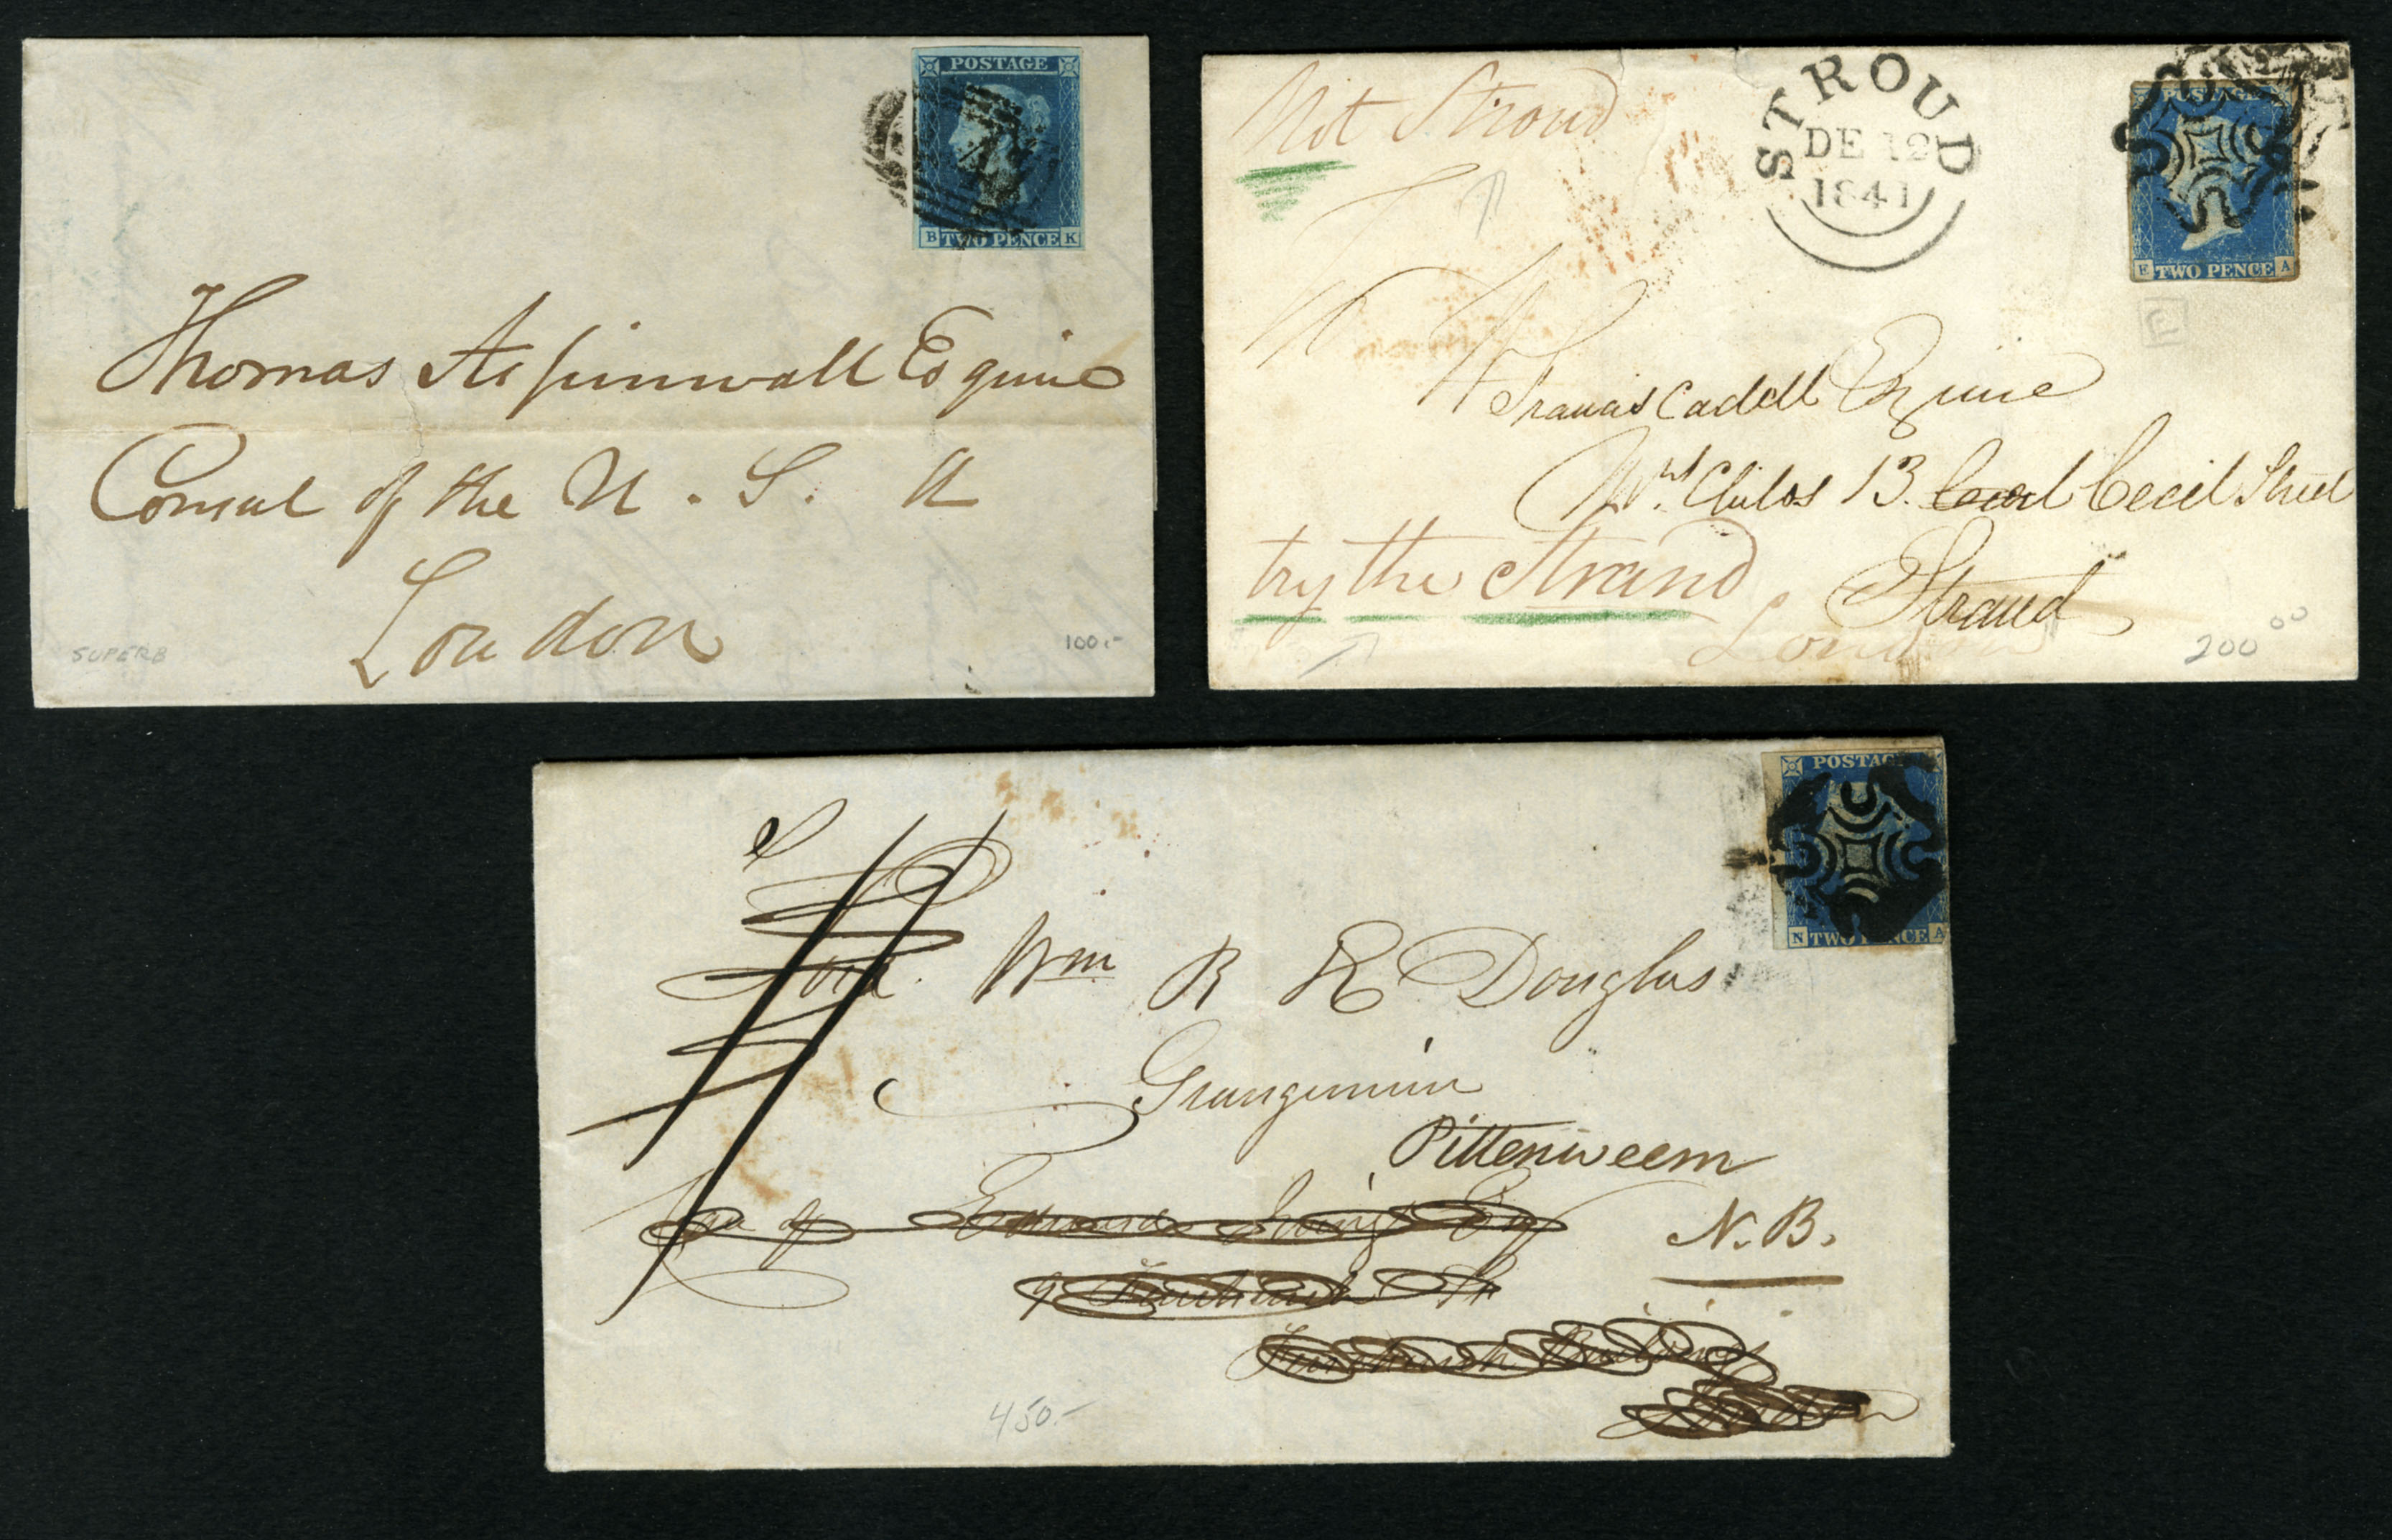 POSTAGE
B TWO PENCE K
Thomas Aspinwall Esquire
Consul of the U. S. A
London
SUPERB
100.-
Not Stroud
STROUD
DE 12
1841
POSTAGE
E TWO PENCE A
E
Francis Cadell Esquire
Mrs. Childs 13. Cecil Street
try the Strand
Strand
London
200 00
POSTAGE
N TWO PENCE A
Wm R R Douglas
Grangemuir
Pittenweem
N.B.
Care of Edmund Esq
9 St
450.-